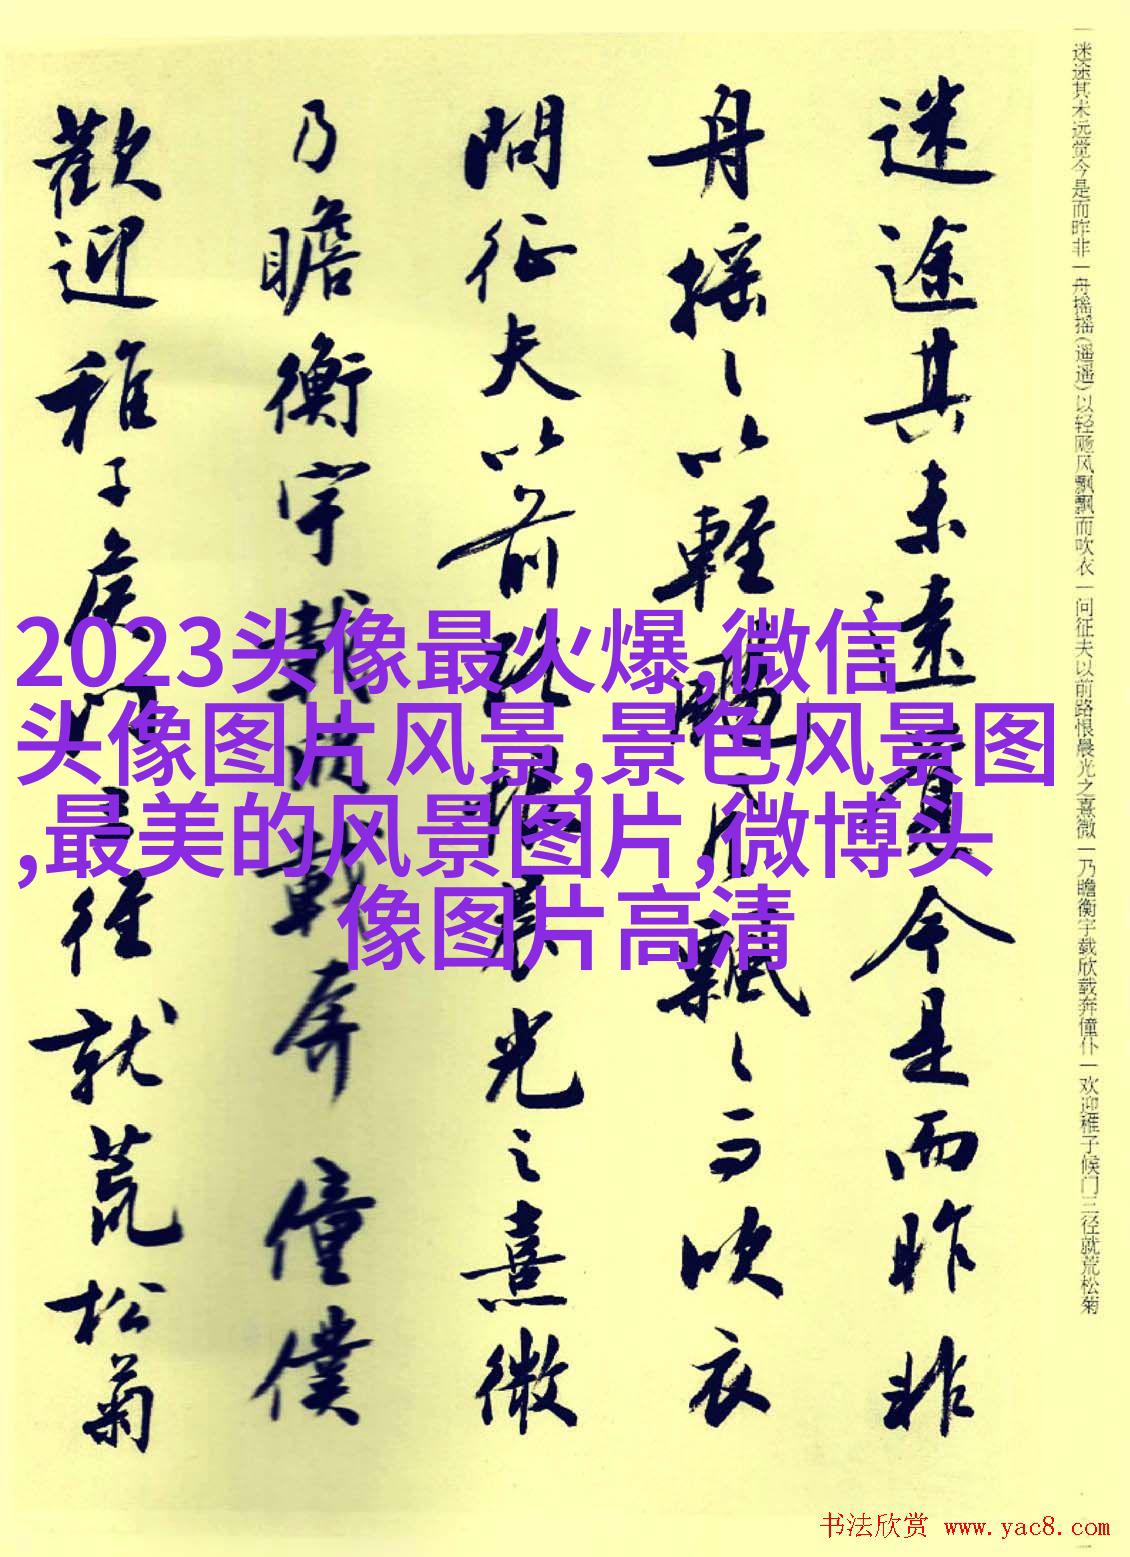 一迷途其未远觉今是而昨非一舟摇摇(遥遥)以轻飏风飘飘而吹衣一问征夫以前路恨晨光之熹微一乃瞻衡宇载欣载奔僮仆一欢迎稚子候门三径就荒松菊
迷途其未遠覺今是而昨非
舟摇〻以輕颺風飄〻而吹衣
問征夫以前路恨晨光之熹微
乃瞻衡宇載欣載奔僮僕
歡迎稚子候門三徑就荒松菊
2023头像最火爆,微信
头像图片风景,景色风景图
,最美的风景图片,微博头
像图片高清
书法欣赏 www.yac8.com